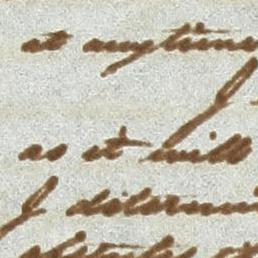 at anytime
as it will
determin